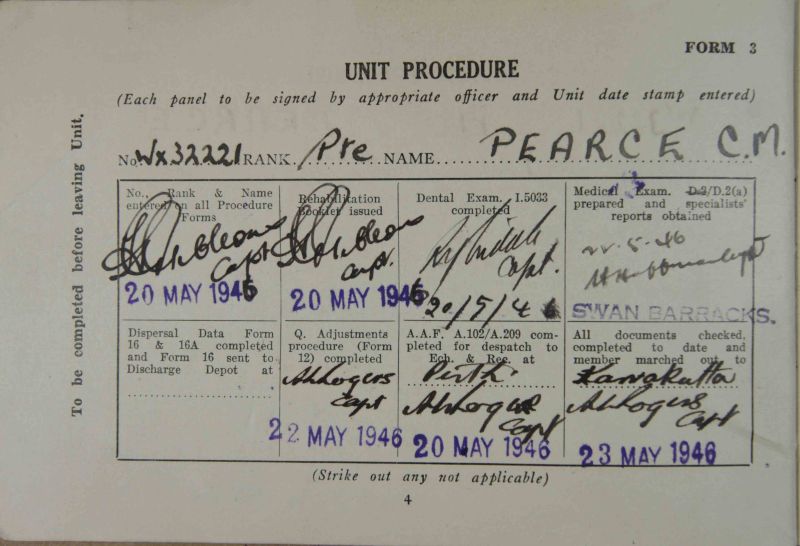 FORM 3
UNIT PROCEDURE
(Each panel to be signed by appropriate officer and Unit date stamp entered)
To be completed before leaving Unit.
No. Wx32221 RANK Pte NAME PEARCE C.M.
No., Rank & Name
entered on all Procedure
Forms
Capt
20 MAY 1946
Rehabilitation
Booklet issued
Capt.
20 MAY 1946
Dental Exam. I.5033
completed
Capt.
20/5/46
Medical Exam. D.2/D.2(a)
prepared and specialists'
reports obtained
22-5-46
Capt
SWAN BARRACKS.
Dispersal Data Form
16 & 16A completed
and Form 16 sent to
Discharge Depot at
Q. Adjustments
procedure (Form
12) completed
AhRogers
Capt
22 MAY 1946
A.A.F. A.102/A.209 com-
pleted for despatch to
Ech. & Rec. at
Perth.
AhRogers
Capt
20 MAY 1946
All documents checked,
completed to date and
member marched out to
Karrakatta
AhRogers
Capt
23 MAY 1946
(Strike out any not applicable)
4